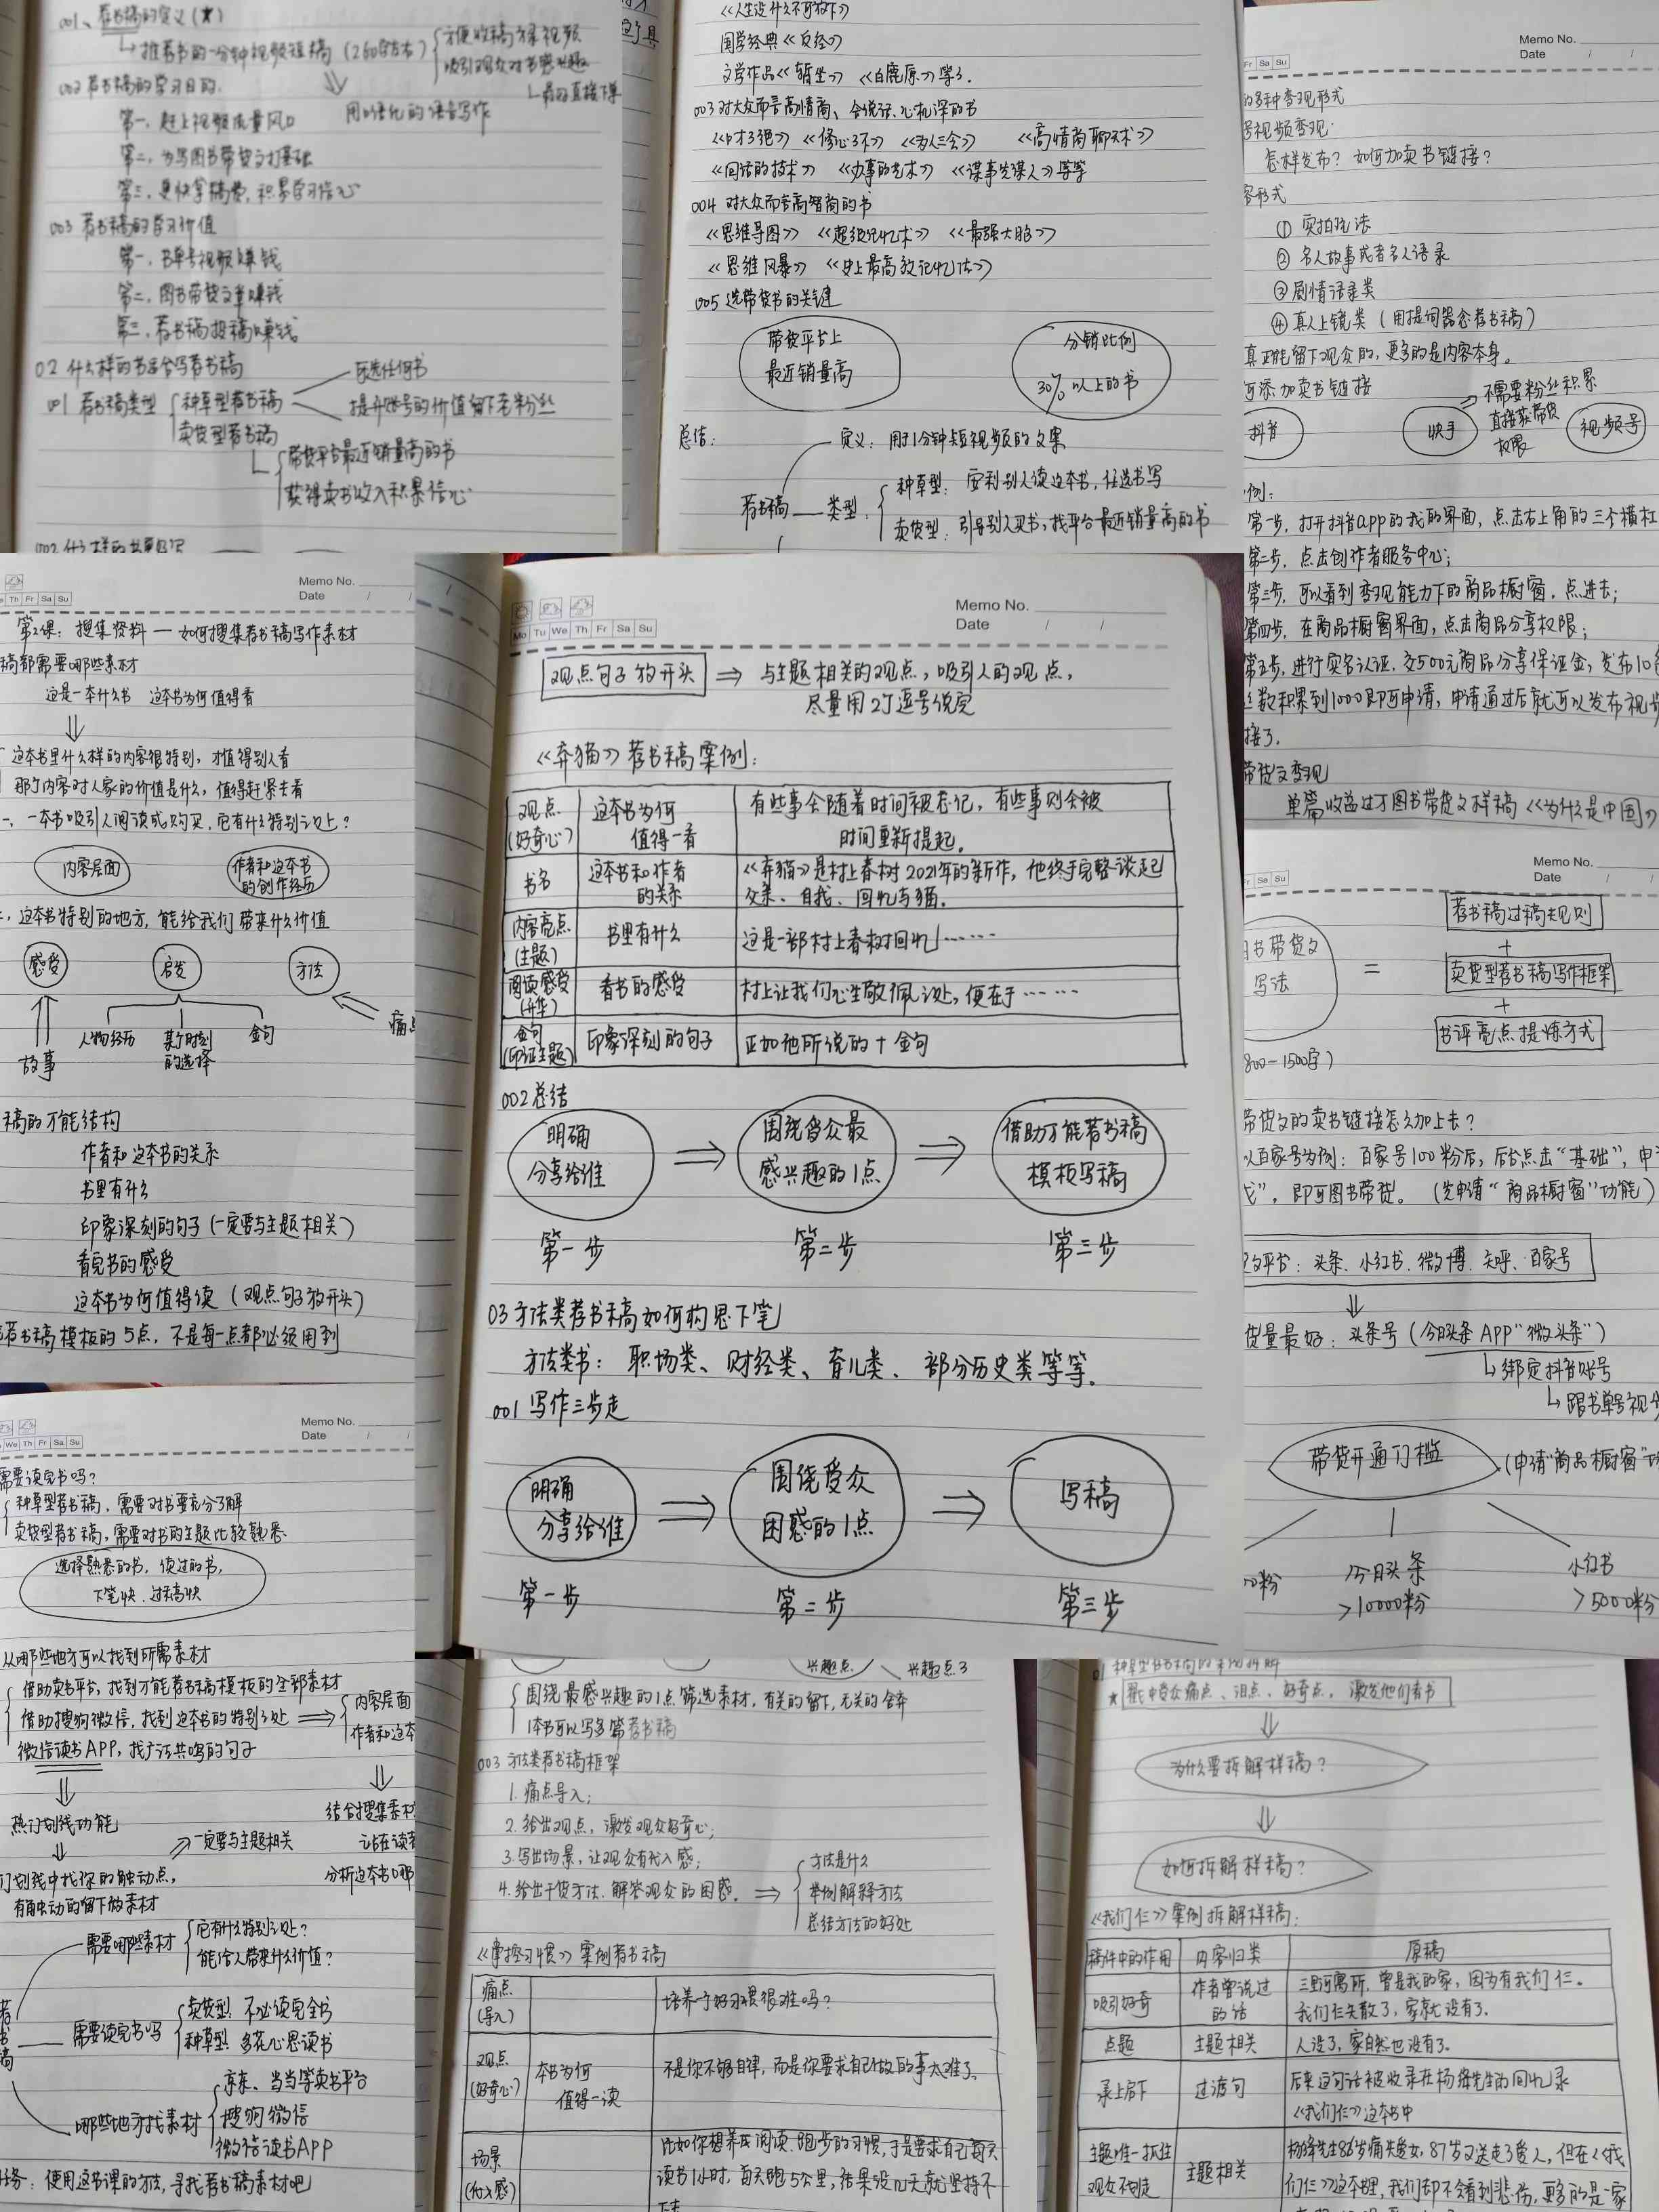 001、荐书稿的定义(★)
推荐书的一分钟视频短稿(260字左右)
方便收稿方录视频
吸引观众对书感兴趣
最好直接下单
用口语化的语言写作
002 荐书稿的学习目的.
第一、赶上视频流量风口
第二、为写图书带货文打基础
第三、更快拿稿费, 积累学习信心
003 荐书稿的学习价值
第一、书单号视频赚钱
第二、图书带货文章赚钱
第三、荐书稿投稿赚钱
02 什么样的书适合写荐书稿
001 荐书稿类型
种草型荐书稿
可选任何书
提升账号的价值留下老粉丝
卖货型荐书稿
带货平台最近销量高的书
获得卖书收入积累信心
《人生没什么不可放下》
国学经典《反经》
文学作品《暂坐》 《白鹿原》等.
003 对大众而言高情商、会说话、心机深的书
《口才三绝》 《修心三不》 《为人三会》 《高情商聊天术》
《回话的技术》 《办事的艺术》 《谋事先谋人》等等
004 对大众而言高智商的书
《思维导图》 《超级记忆术》 《最强大脑》
《思维风暴》 《史上最高效记忆法》
005 选带货书的关键
带货平台上
最近销量高
分销比例
30%以上的书
总结:
定义: 用于1分钟短视频的文案
荐书稿 — 类型
种草型: 安利别人读这本书, 任选书写
卖货型: 引导别人买书, 找平台最近销量高的书
Memo No.
Date / /
Fr Sa Su
的多种变现形式
号视频变现.
怎样发布? 如何加卖书链接?
容形式
① 实拍玩法
② 名人故事或者名人语录
③ 剧情语录类
④ 真人上镜类 (用提词器念荐书稿)
真正能留下观众的, 更多的是内容本身。
可添加卖书链接
抖音
快手
不需要粉丝积累
直接获带货
权限
视频号
例:
第一步, 打开抖音app的我的界面, 点击右上角的三个横杠
第二步, 点击创作者服务中心;
第三步, 可以看到变现能力下的商品橱窗, 点进去;
第四步, 在商品橱窗界面, 点击商品分享权限;
第五步, 进行实名认证, 交500元商品分享保证金, 发布10
数积累到1000即可申请, 申请通过后就可以发布视
接了.
带货文变现
单篇收益过万图书带货文样稿《为什么是中国》
Memo No.
Date / /
Th Fr Sa Su
第2课: 搜集资料 — 如何搜集荐书稿写作素材
稿都需要哪些素材
这是一本什么书 这本书为何值得看
这本书里什么样的内容很特别, 才值得别人看
那个内容对人家的价值是什么, 值得赶紧去看
一、一本书吸引人阅读或购买, 它有什么特别之处?
内容层面
作者和这本书
的创作经历
二、这本书特别的地方, 能给我们带来什么价值
感受
启发
方法
故事
人物经历
某个时刻
的选择
金句
痛点
稿的万能结构
作者和这本书的关系
书里有什么
印象深刻的句子(一定要与主题相关)
看完书的感受
这本书为何值得读 (观点句子放开头)
荐书稿模板的5点, 不是每一点都必须用到
Memo No.
Date / /
Mo Tu We Th Fr Sa Su
观点句子放开头 ⇒ 与主题相关的观点, 吸引人的观点,
尽量用2个逗号说完
《弃猫》荐书稿案例:
观点
(好奇心)
这本书为何
值得一看
有些事会随着时间被忘记, 有些事则会被
时间重新提起。
书名
这本书和作者
的关系
《弃猫》是村上春树2021年的新作, 他终于完整谈起
父亲、自我、回忆与猫。
内容亮点
(主题)
书里有什么
这是一部村上春树回忆……
阅读感受
(升华)
看书的感受
村上让我们心生敬佩之处, 便在于……
金句
(印证主题)
印象深刻的句子
正如他所说的 + 金句
002 总结
明确
分享给谁
围绕受众最
感兴趣的1点
借助万能荐书稿
模板写稿
第一步 第二步 第三步
03 方法类荐书稿如何构思下笔
方法类书: 职场类、财经类、育儿类、部分历史类等等。
001 写作三步走
明确
分享给谁
围绕受众
困惑的1点
写稿
第一步 第二步 第三步
Memo No.
Date / /
Fr Sa Su
书带货文
写法
=
荐书稿过稿规则
+
卖货型荐书稿写作框架
+
书评亮点提炼方式
800-1500字)
带货文的卖书链接怎么加上去?
以百家号为例: 百家号100粉后, 后台点击“基础”,
”, 即可图书带货。 (先申请“商品橱窗”功能)
平台: 头条、小红书、微博、知乎、百家号
货量最好: 头条号 (今日头条 APP“微头条”)
绑定抖音账号
跟书单号视
带货开通门槛
(申请“商品橱窗”
粉
今日头条
>10000粉
小红书
>5000粉
Memo No.
Date / /
We Th Fr Sa Su
需要读完书吗?
种草型荐书稿, 需要对书要充分了解
卖货型荐书稿, 需要对书的主题比较熟悉
选择熟悉的书, 读过的书,
下笔快, 过稿快
从哪些地方可以找到所需素材
借助卖书平台, 找到万能荐书稿模板的全部素材
借助搜狗微信, 找到这本书的特别之处 ⇒
内容层面
作者和这本
微信读书APP, 找广泛共鸣的句子
热门划线功能
一定要与主题相关
门划线中找你的触动点,
有触动的留下做素材
结合搜集素材
站在读者
分析这本书哪
需要哪些素材
它有什么特别之处?
能给人带来什么价值?
荐书稿
需要读完书吗
卖货型: 不必读完全书
种草型: 多花心思读书
哪些地方找素材
京东、当当等卖书平台
搜狗微信
微信读书APP
任务: 使用这节课的方法, 寻找荐书稿素材吧
兴趣点
兴趣点3
围绕最感兴趣的1点筛选素材, 有关的留下, 无关的舍弃
1本书可以写多篇荐书稿
003 方法类荐书稿框架
1. 痛点导入;
2. 给出观点, 激发观众好奇心;
3. 写出场景, 让观众有代入感;
4. 给出干货方法, 解答观众的困惑. ⇒
方法是什么
举例解释方法
总结方法的好处
《掌控习惯》案例荐书稿
痛点
(导入)
培养个好习惯很难吗?
观点
(好奇心)
本书为何
值得一读
不是你不够自律, 而是你要求自己做的事太难了。
场景
(代入感)
比如你想养成阅读、跑步的习惯, 于是要求自己每天
读书1小时, 每天跑5公里, 结果没几天就坚持不
下去
01 种草型荐书稿的案例拆解
★ 戳中受众痛点、泪点、好奇点, 激发他们看书
为什么要拆解样稿?
如何拆解样稿?
《我们仨》案例拆解样稿:
稿件中的作用
内容归类
原稿
吸引好奇
作者曾说过
的话
三里河寓所, 曾是我的家, 因为有我们仨。
我们仨失散了, 家就没有了.
点题
主题相关
人没了, 家自然也没有了.
承上启下
过渡句
后来这句话被收录在杨绛先生的回忆录
《我们仨》这本书中
主题唯一抓住
观众不划走
主题相关
杨绛先生86岁痛失爱女, 87岁又送走了爱人, 但在《我
们仨》这本书里, 我们却不会看到悲伤, 更多的是一家